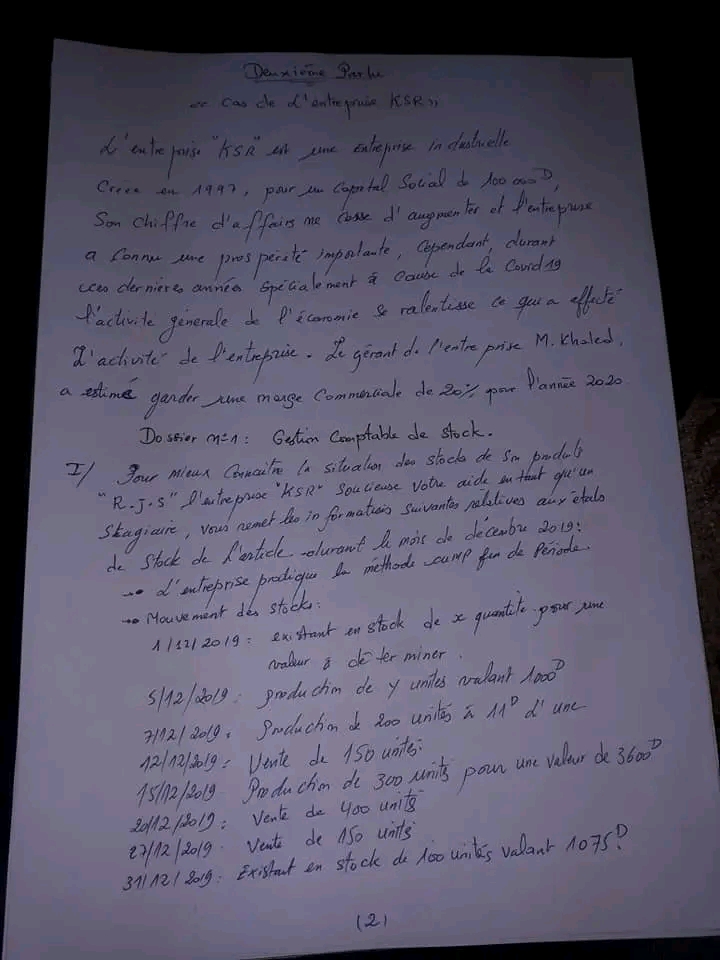 Deuxième Partie
« Cas de L'entreprise KSR »
L'entreprise "KSR" est une entreprise industrielle
Créée en 1997, pour un Capital Social de 100 000D,
Son chiffre d'affaires ne cesse d'augmenter et l'entreprise
a connu une prospérité importante, cependant, durant
ces dernières années spécialement à cause de la Covid19
l'activité générale de l'économie se ralentisse ce qui a effecté
L'activité de l'entreprise. Le gérant de l'entreprise M. Khaled,
a estimé garder une marge Commerciale de 20% pour l'année 2020
Dossier n°1 : Gestion Comptable de stock.
I/ Pour mieux connaître la situation des stocks de son produits
"R.J.S" l'entreprise "KSR" soucieuse votre aide en tant qu'un
Stagiaire, vous remet les informations suivantes relatives aux états
de Stock de L'article durant le mois de décembre 2019:
→ L'entreprise pratique la méthode CUMP fin de Période.
→ Mouvement des stocks :
1/12/2019 : existant en stock de x quantité pour une
valeur à déterminer.
5/12/2019 : production de y unités valant 1000D
7/12/2019 : Production de 200 unités à 11D d'une
12/12/2019 : Vente de 150 unités.
15/12/2019 Production de 300 unités pour une valeur de 3600D
20/12/2019 : Vente de 400 unités
27/12/2019 Vente de 150 unités
31/12/2019 : Existant en stock de 100 unités valant 1075D.
(2)